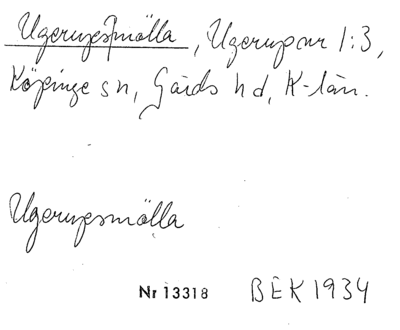 Ugerupsmölla, Ugerup nr 1:3,
Köpinge sn, Gärds hd, K-län.
Ugerupsmölla
Nr 13318 BEK 1934